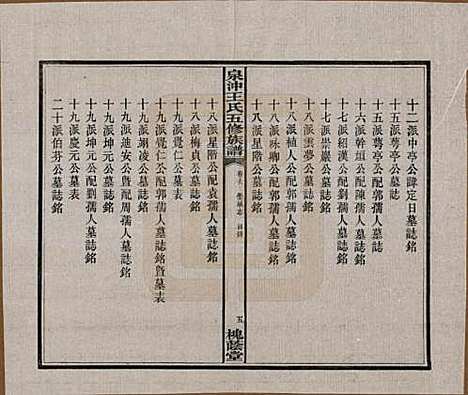 十二派中亭公諱定日墓誌銘
十五派蓴亭公墓誌
十五派蓴亭公配郭孺人墓誌銘
十六派幹垣公配陳孺人墓誌銘
十七派紹漢公配劉孺人墓誌銘
十七派崇巖公墓誌銘
十八派雲夢公墓誌銘
十八派植人公配郭孺人墓誌銘
十八派咏卿公配郭孺人墓誌銘
十八派星階公墓誌銘
泉沖王氏五修族譜
五
槐蔭堂
十八派星階公配袁孺人墓誌銘
十八派梅貞公墓誌銘
十九派覺仁公墓表
十九派覺仁公配郭孺人墓誌銘暨墓表
十九派翊凌公墓誌銘
十九派迪安公暨配周孺人墓誌銘
十九派坤元公墓誌銘
十九派坤元公配劉孺人墓誌銘
十九派慶元公墓誌銘
二十派伯芬公墓誌銘